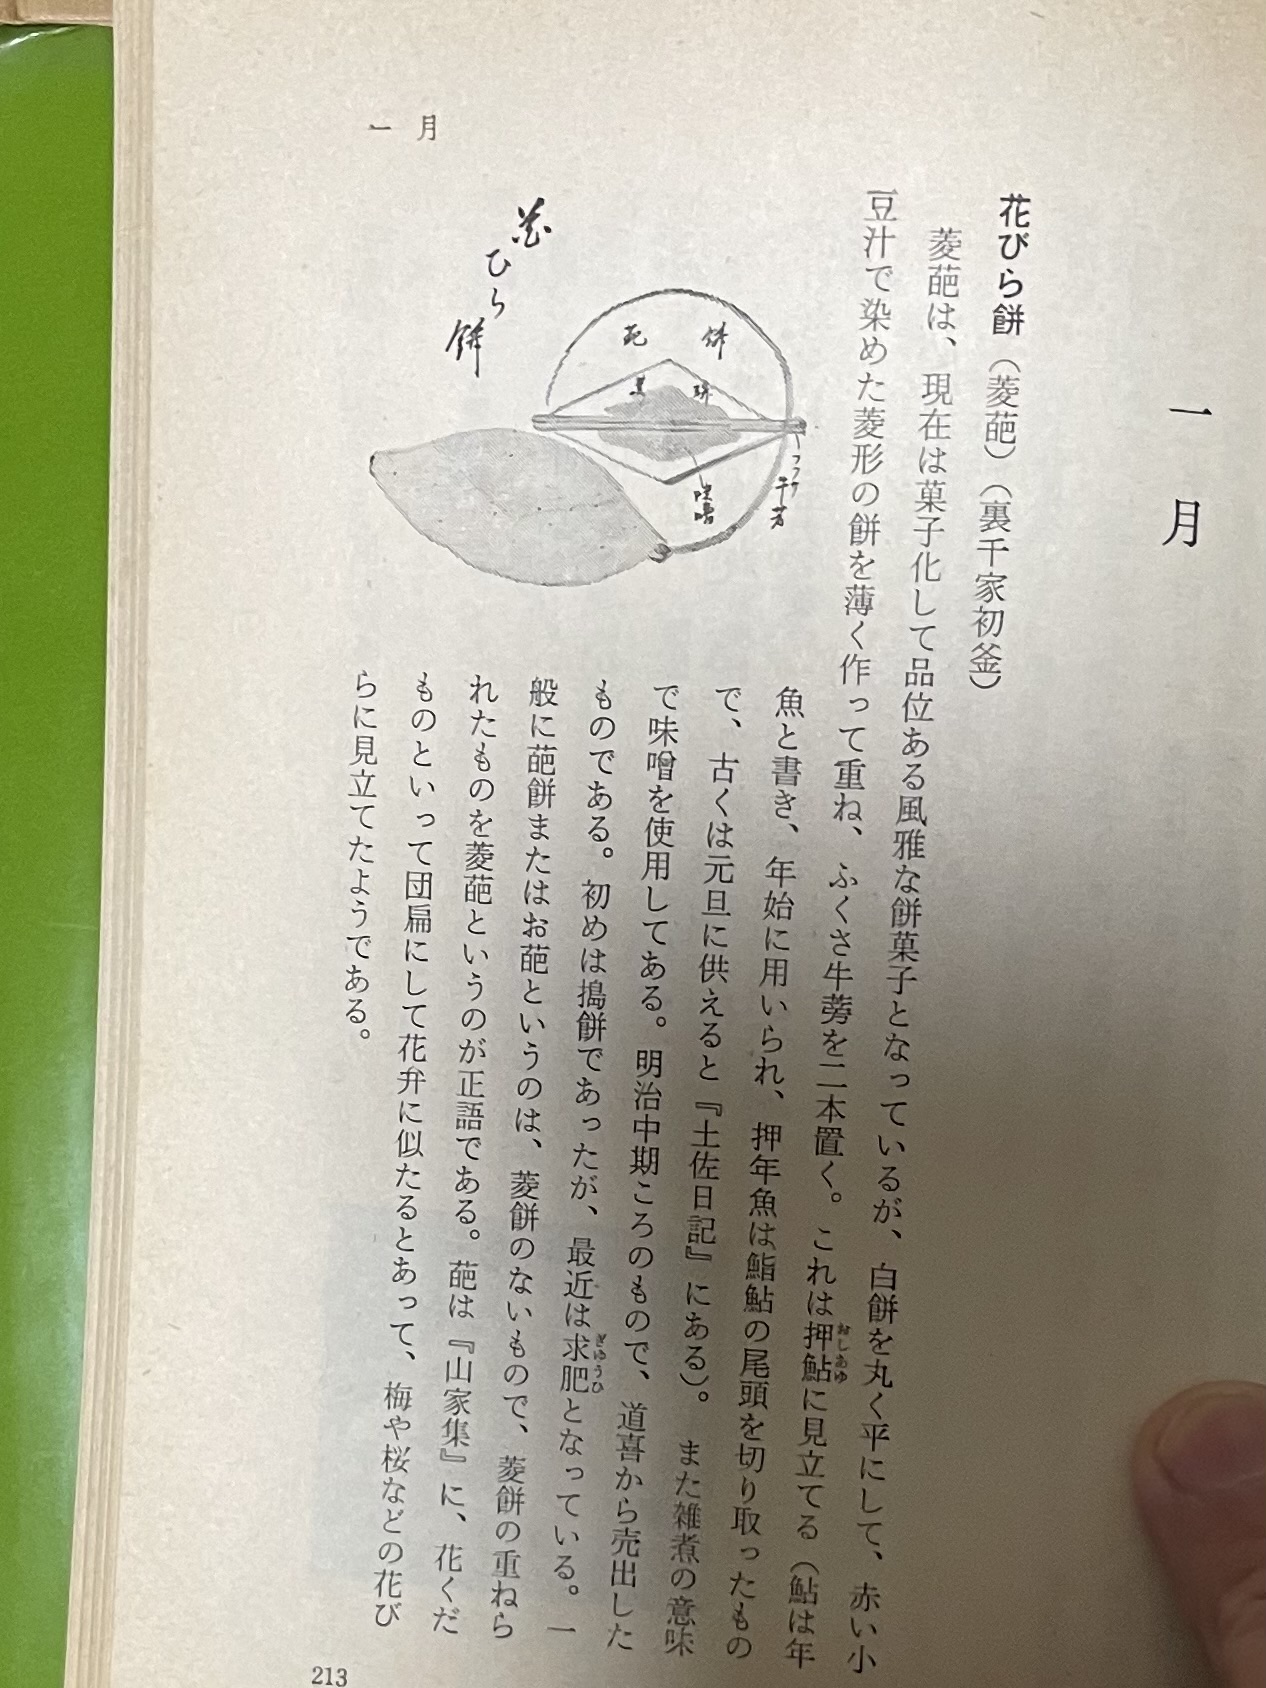 一月
花びら餅（菱葩）（裏千家初釜）
菱葩は、現在は菓子化して品位ある風雅な餅菓子となっているが、白餅を丸く平にして、赤い小
豆汁で染めた菱形の餅を薄く作って重ね、ふくさ牛蒡を二本置く。これは押鮎に見立てる（鮎は年
おしあゆ
魚と書き、年始に用いられ、押年魚は鮨鮎の尾頭を切り取ったもの
で、古くは元旦に供えると『土佐日記』にある）。また雑煮の意味
で味噌を使用してある。明治中期ころのもので、道喜から売出した
ものである。初めは搗餅であったが、最近は求肥となっている。一
ぎゅうひ
般に葩餅またはお葩というのは、菱餅のないもので、菱餅の重ねら
れたものを菱葩というのが正語である。葩は『山家集』に、花くだ
ものといって団扁にして花弁に似たるとあって、梅や桜などの花び
らに見立てたようである。
花ひら餅
餅
葩
味噌
一月
213